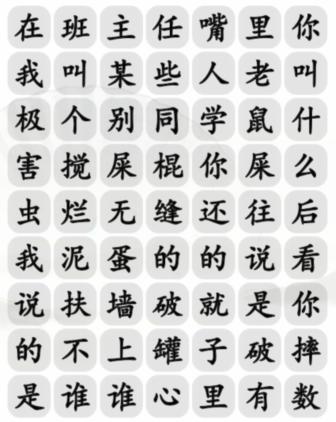 在班主任嘴里你
我叫某些人老叫
极个别同学鼠什
害搅屎棍你屎么
虫烂无缝还往后
我泥蛋的的说看
说扶墙破就是你
的不上罐子破摔
是谁谁心里有数